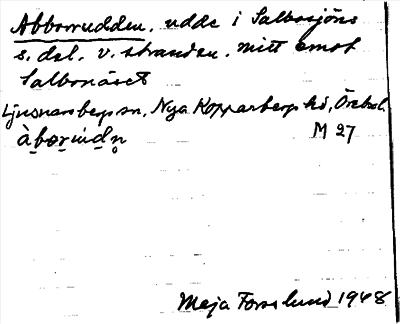 Abborrudden, udde i Salbosjöns
s. del. v. stranden. mitt emot
Salbonäset
Ljusnarsbergs sn, Nya Kopparbergs hd, Örebro l.
àbor̯ud̯n̥ M 27
Maja Forsslund 1948